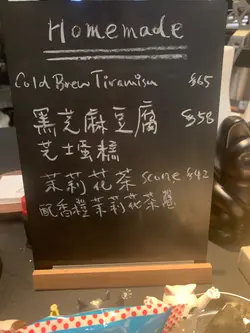 Homemade
Cold Brew Tiramisu $65
黑芝麻豆腐 $58
芝士蛋糕
茉莉花茶 scone $42
配香橙茉莉花茶醬